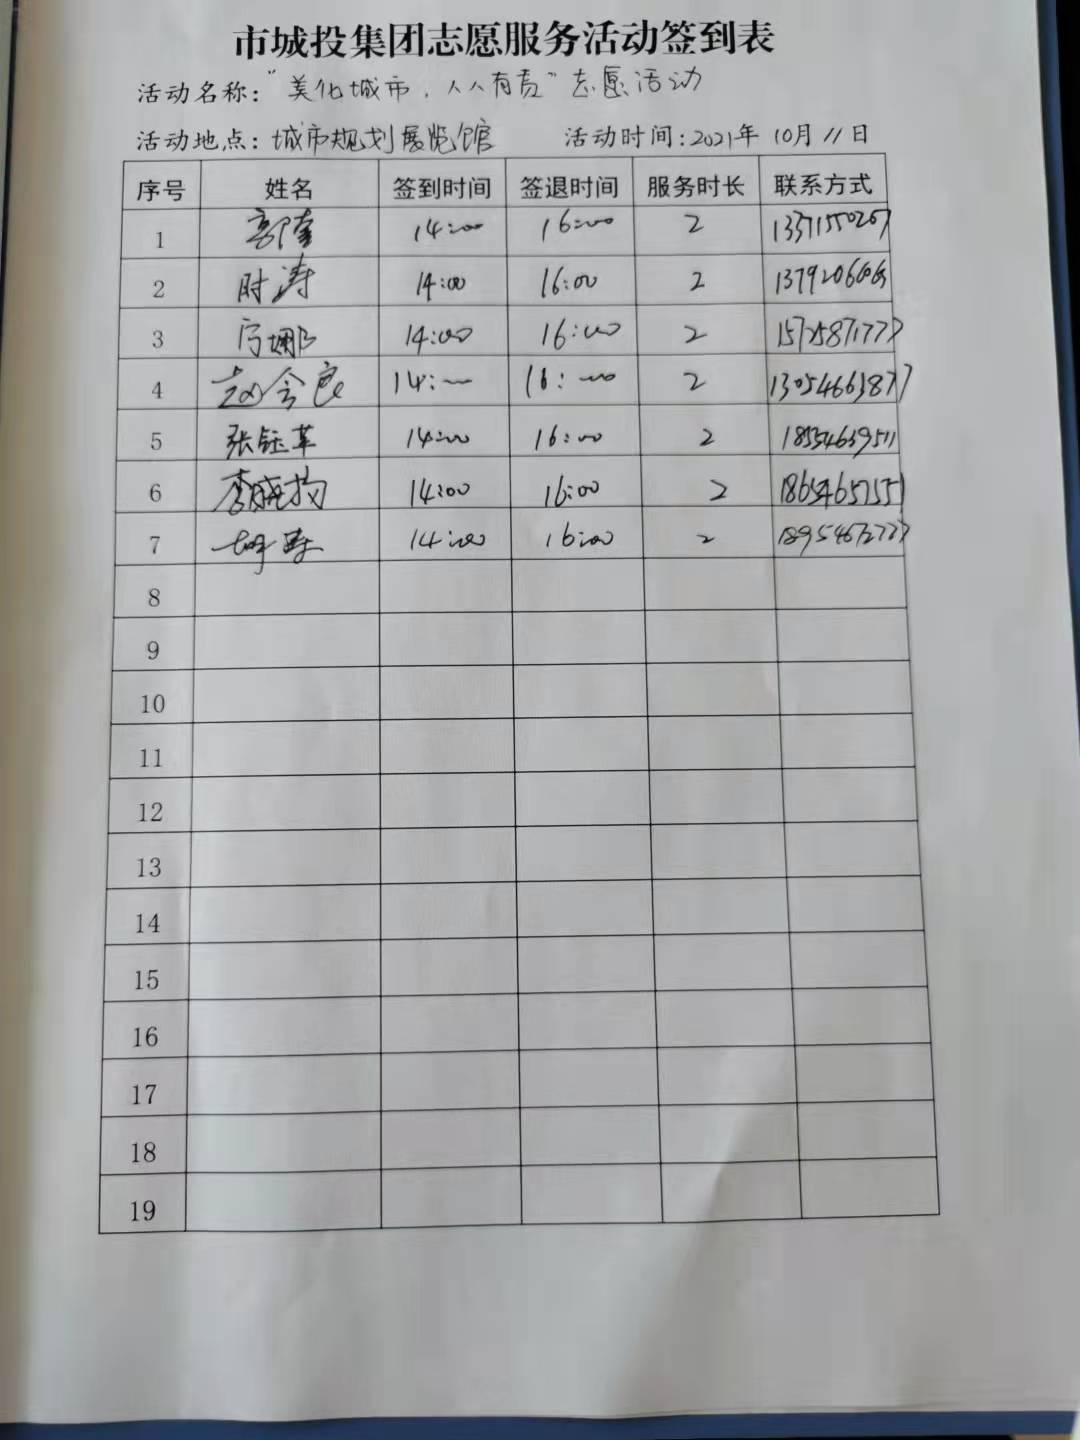 市城投集团志愿服务活动签到表
活动名称："美化城市，人人有责"志愿活动
活动地点：城市规划展览馆 活动时间：2021年10月11日
序号 姓名 签到时间 签退时间 服务时长 联系方式
1 14:00 16:00 2
2 时涛 14:00 16:00 2
3 14:00 16:00 2
4 赵会良 14:00 16:00 2
5 张钰苹 14:00 16:00 2
6 14:00 16:00 2
7 14:00 16:00 2
8
9
10
11
12
13
14
15
16
17
18
19